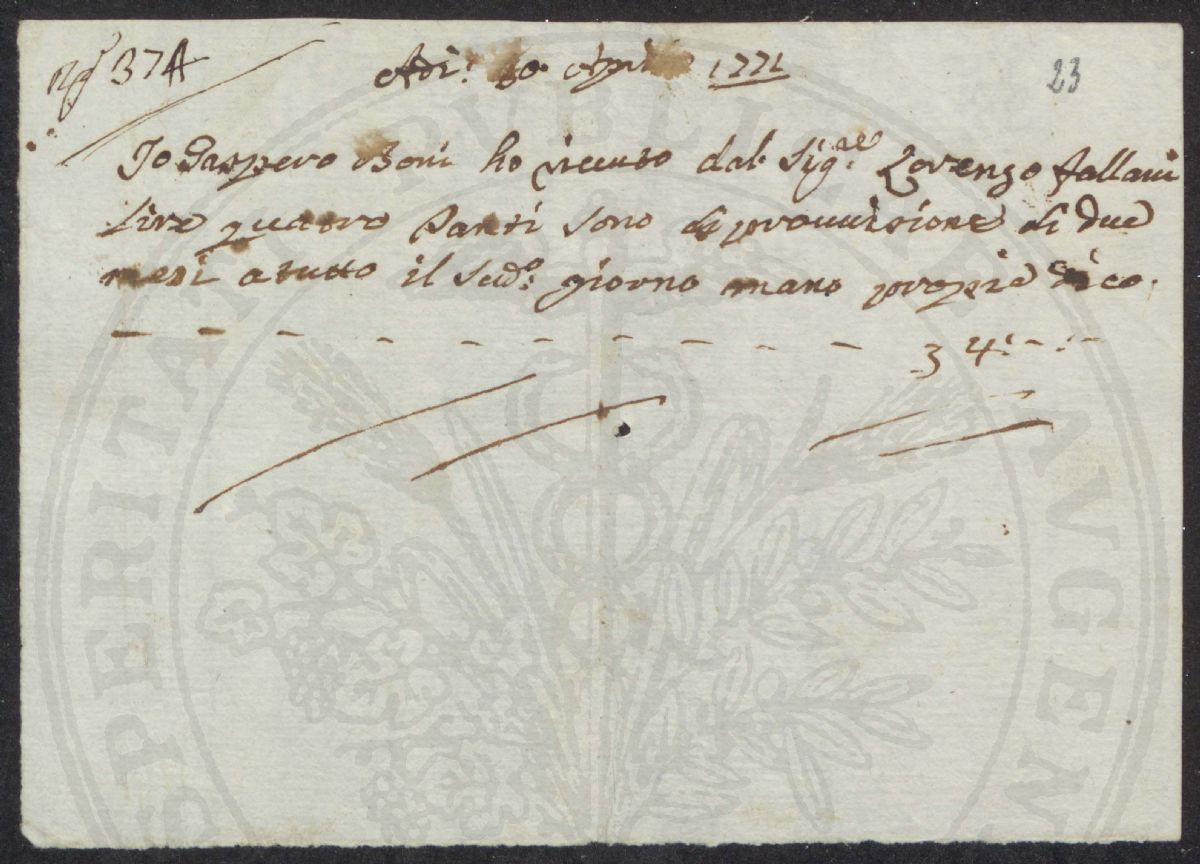 37A
Adi: 30 Aprile 1771
23
Io Gaspero Boni ho riceuto dal Sig.re Lorenzo Fallani
Lire quatro Tanti sono di prouuisione di due
mesi a tutto il Sud.o giorno mano propria dico.
— — — — — — — — — — — 3 4:-:-